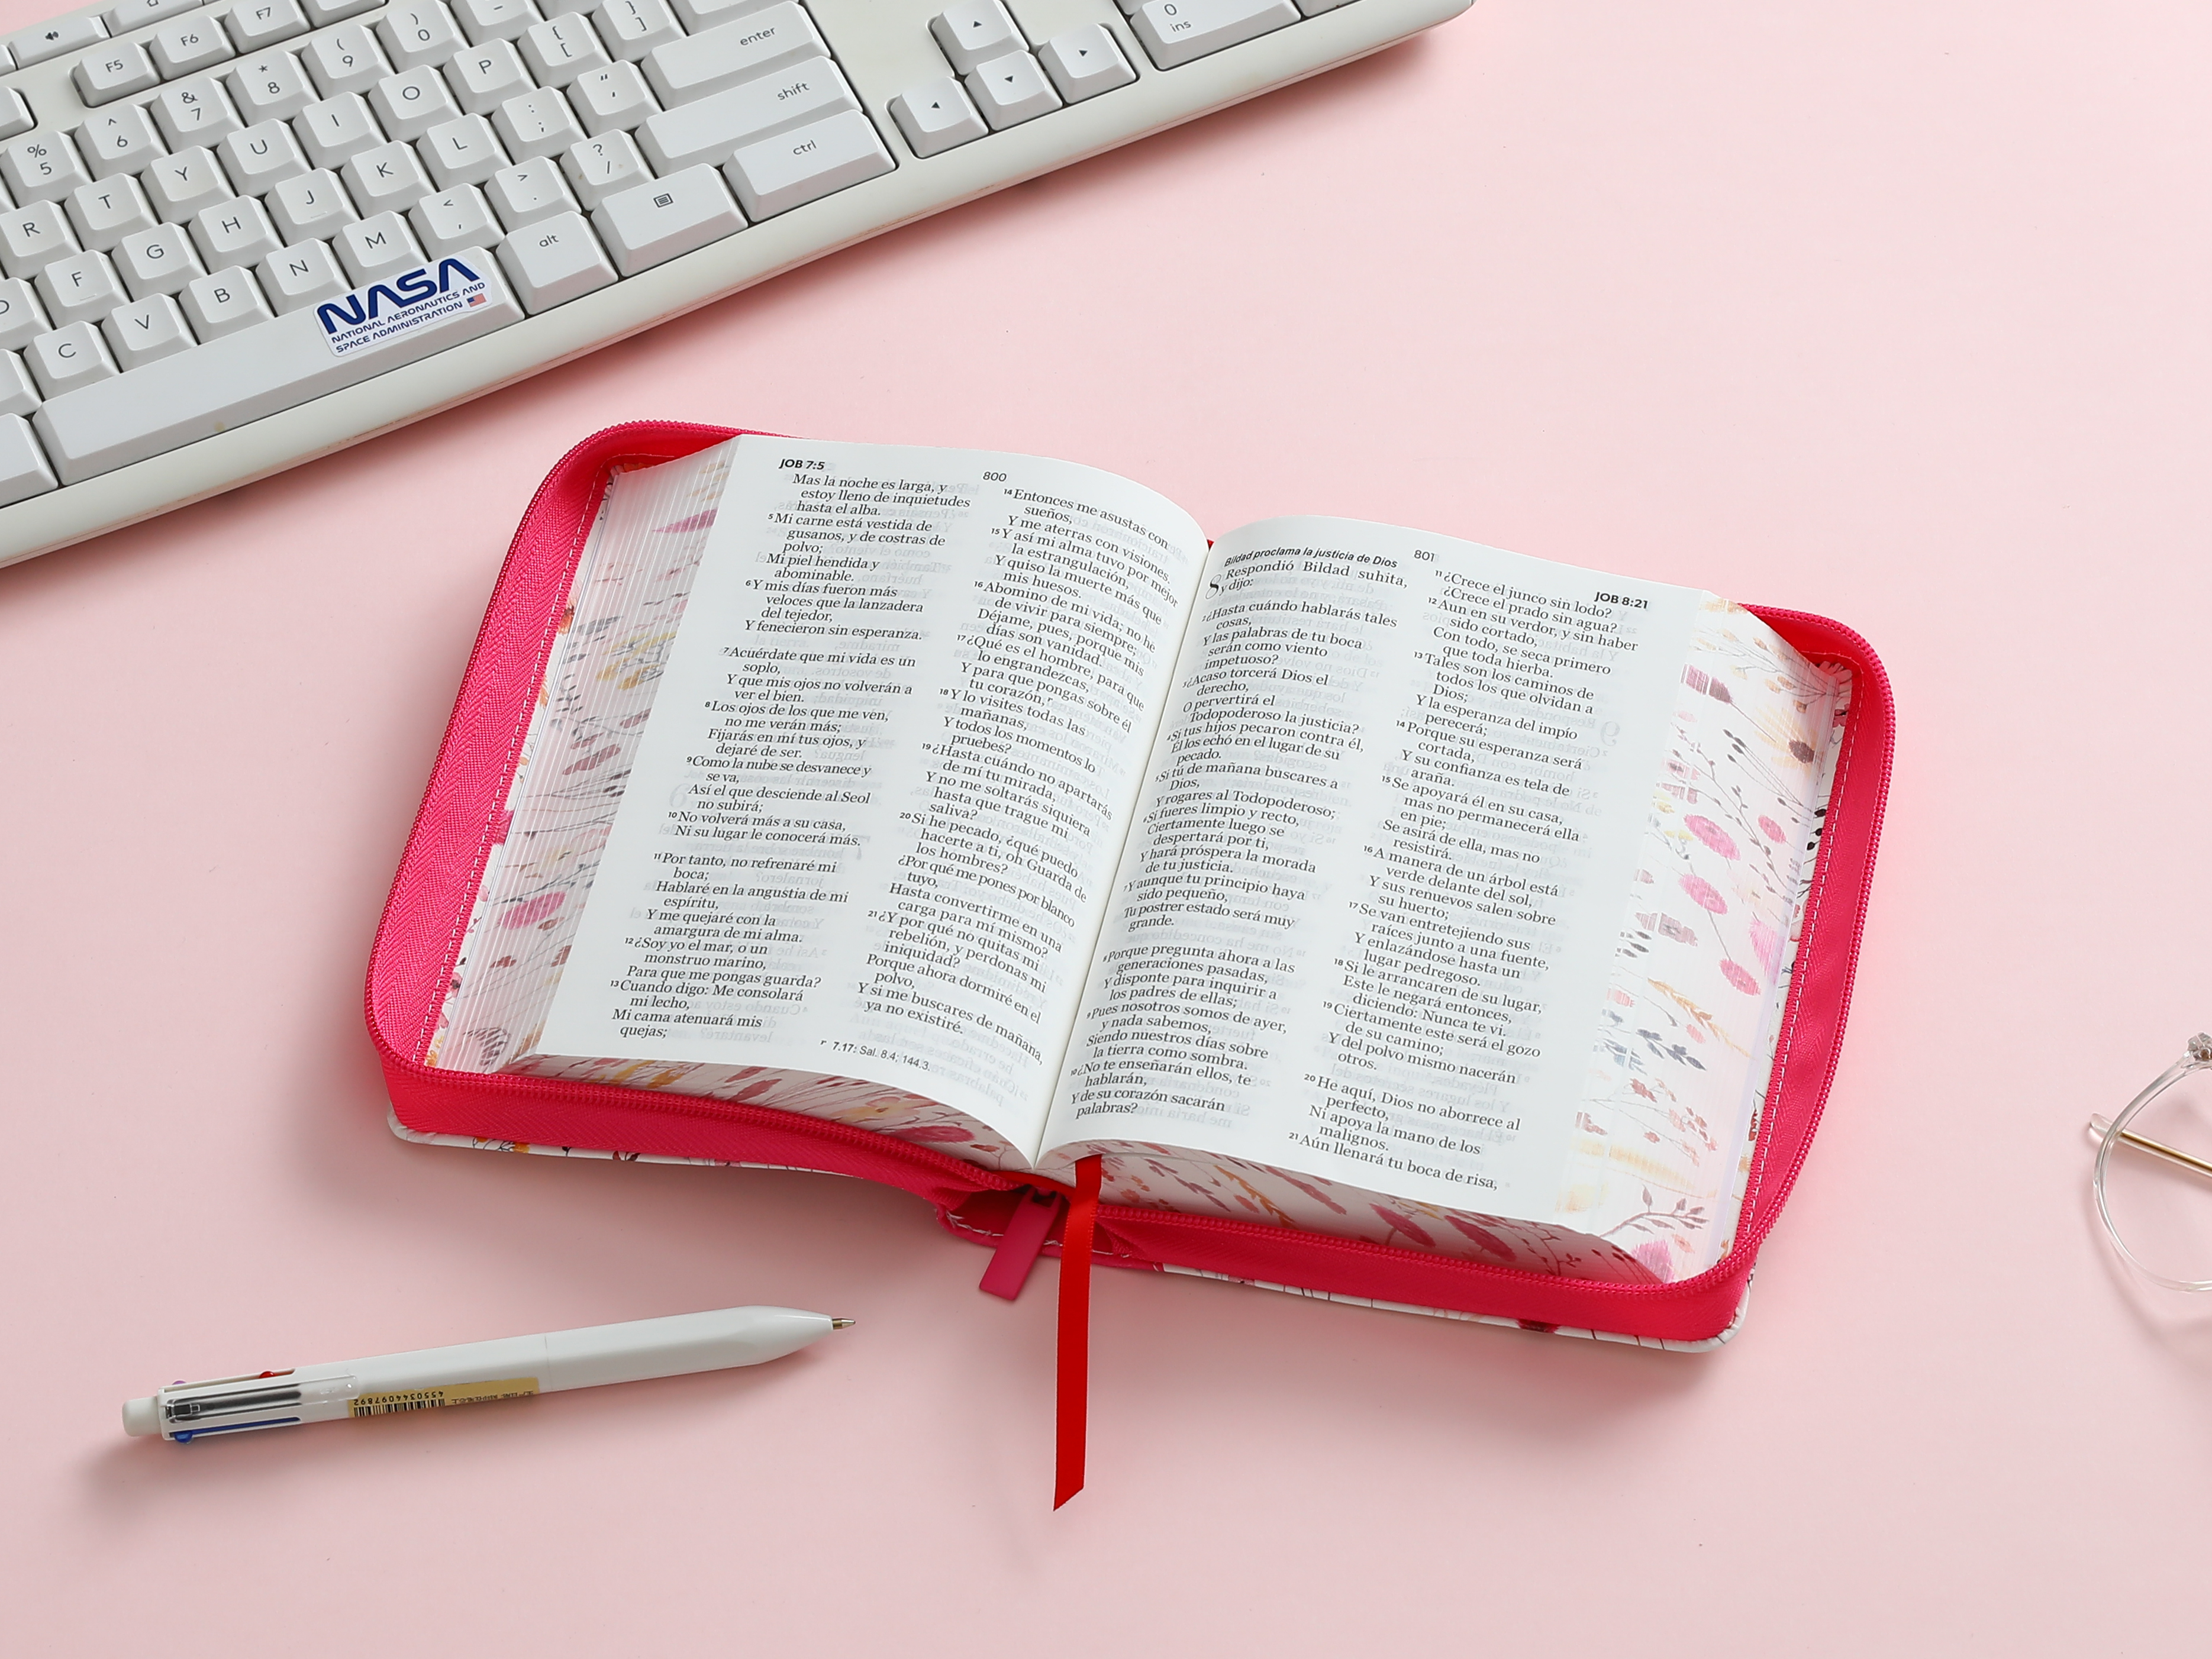 F5
F6
F7
)
0
-
{
[
}
]
enter
0
ins
%
5
^
6
&
7
*
8
(
9
R
T
Y
U
I
O
P
:
;
"
shift
F
G
H
J
K
L
<
,
>
.
?
/
ctrl
C
V
B
N
M
alt
NASA
NATIONAL AERONAUTICS AND
SPACE ADMINISTRATION
JOB 7:5
800
Mas la noche es larga, y
estoy lleno de inquietudes
hasta el alba.
5 Mi carne está vestida de
gusanos, y de costras de
polvo;
Mi piel hendida y
abominable.
6 Y mis días fueron más
veloces que la lanzadera
del tejedor,
Y fenecieron sin esperanza.
7 Acuérdate que mi vida es un
soplo,
Y que mis ojos no volverán a
ver el bien.
8 Los ojos de los que me ven,
no me verán más;
Fijarás en mí tus ojos, y
dejaré de ser.
9 Como la nube se desvanece y
se va,
Así el que desciende al Seol
no subirá;
10 No volverá más a su casa,
Ni su lugar le conocerá más.
11 Por tanto, no refrenaré mi
boca;
Hablaré en la angustia de mi
espíritu,
Y me quejaré con la
amargura de mi alma.
12 ¿Soy yo el mar, o un
monstruo marino,
Para que me pongas guarda?
13 Cuando digo: Me consolará
mi lecho,
Mi cama atenuará mis
quejas;
14 Entonces me asustas con
sueños,
Y me aterras con visiones.
15 Y así mi alma tuvo por mejor
la estrangulación,
Y quiso la muerte más que
mis huesos.
16 Abomino de mi vida; no he
de vivir para siempre;
Déjame, pues, porque mis
días son vanidad.
17 ¿Qué es el hombre, para que
lo engrandezcas,
Y para que pongas sobre él
tu corazón, r
18 Y lo visites todas las
mañanas,
Y todos los momentos lo
pruebes?
19 ¿Hasta cuándo no apartarás
de mí tu mirada,
Y no me soltarás siquiera
hasta que trague mi
saliva?
20 Si he pecado, ¿qué puedo
hacerte a ti, oh Guarda de
los hombres?
¿Por qué me pones por blanco
tuyo,
Hasta convertirme en una
carga para mí mismo?
21 ¿Y por qué no quitas mi
rebelión, y perdonas mi
iniquidad?
Porque ahora dormiré en el
polvo,
Y si me buscares de mañana,
ya no existiré.
r 7.17: Sal. 8.4; 144.3.
801
JOB 8:21
Bildad proclama la justicia de Dios
8 Respondió Bildad suhita,
y dijo:
2 ¿Hasta cuándo hablarás tales
cosas,
Y las palabras de tu boca
serán como viento
impetuoso?
3 ¿Acaso torcerá Dios el
derecho,
O pervertirá el
Todopoderoso la justicia?
4 Si tus hijos pecaron contra él,
Él los echó en el lugar de su
pecado.
5 Si tú de mañana buscares a
Dios,
Y rogares al Todopoderoso;
6 Si fueres limpio y recto,
Ciertamente luego se
despertará por ti,
Y hará próspera la morada
de tu justicia.
7 Y aunque tu principio haya
sido pequeño,
Tu postrer estado será muy
grande.
8 Porque pregunta ahora a las
generaciones pasadas,
Y disponte para inquirir a
los padres de ellas;
9 Pues nosotros somos de ayer,
y nada sabemos,
Siendo nuestros días sobre
la tierra como sombra.
10 ¿No te enseñarán ellos, te
hablarán,
Y de su corazón sacarán
palabras?
11 ¿Crece el junco sin lodo?
¿Crece el prado sin agua?
12 Aun en su verdor, y sin haber
sido cortado,
Con todo, se seca primero
que toda hierba.
13 Tales son los caminos de
todos los que olvidan a
Dios;
Y la esperanza del impío
perecerá;
14 Porque su esperanza será
cortada,
Y su confianza es tela de
araña.
15 Se apoyará él en su casa,
mas no permanecerá ella
en pie;
Se asirá de ella, mas no
resistirá.
16 A manera de un árbol está
verde delante del sol,
Y sus renuevos salen sobre
su huerto;
17 Se van entretejiendo sus
raíces junto a una fuente,
Y enlazándose hasta un
lugar pedregoso.
18 Si le arrancaren de su lugar,
Este le negará entonces,
diciendo: Nunca te vi.
19 Ciertamente este será el gozo
de su camino;
Y del polvo mismo nacerán
otros.
20 He aquí, Dios no aborrece al
perfecto,
Ni apoya la mano de los
malignos.
21 Aún llenará tu boca de risa,
4550344097892